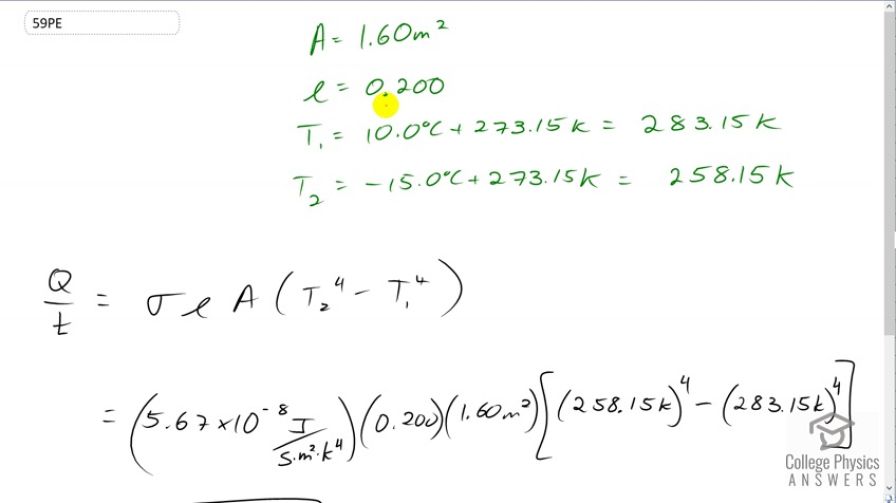 59PE
A = 1.60m²
e = 0.200
T₁ = 10.0°C + 273.15K = 283.15K
T₂ = -15.0°C + 273.15K = 258.15K
Q/t = σ e A (T₂⁴ - T₁⁴)
= (5.67 × 10⁻⁸ J/s·m²·K⁴)(0.200)(1.60m²)[(258.15K)⁴ - (283.15K)⁴]
College Physics
ANSWERS